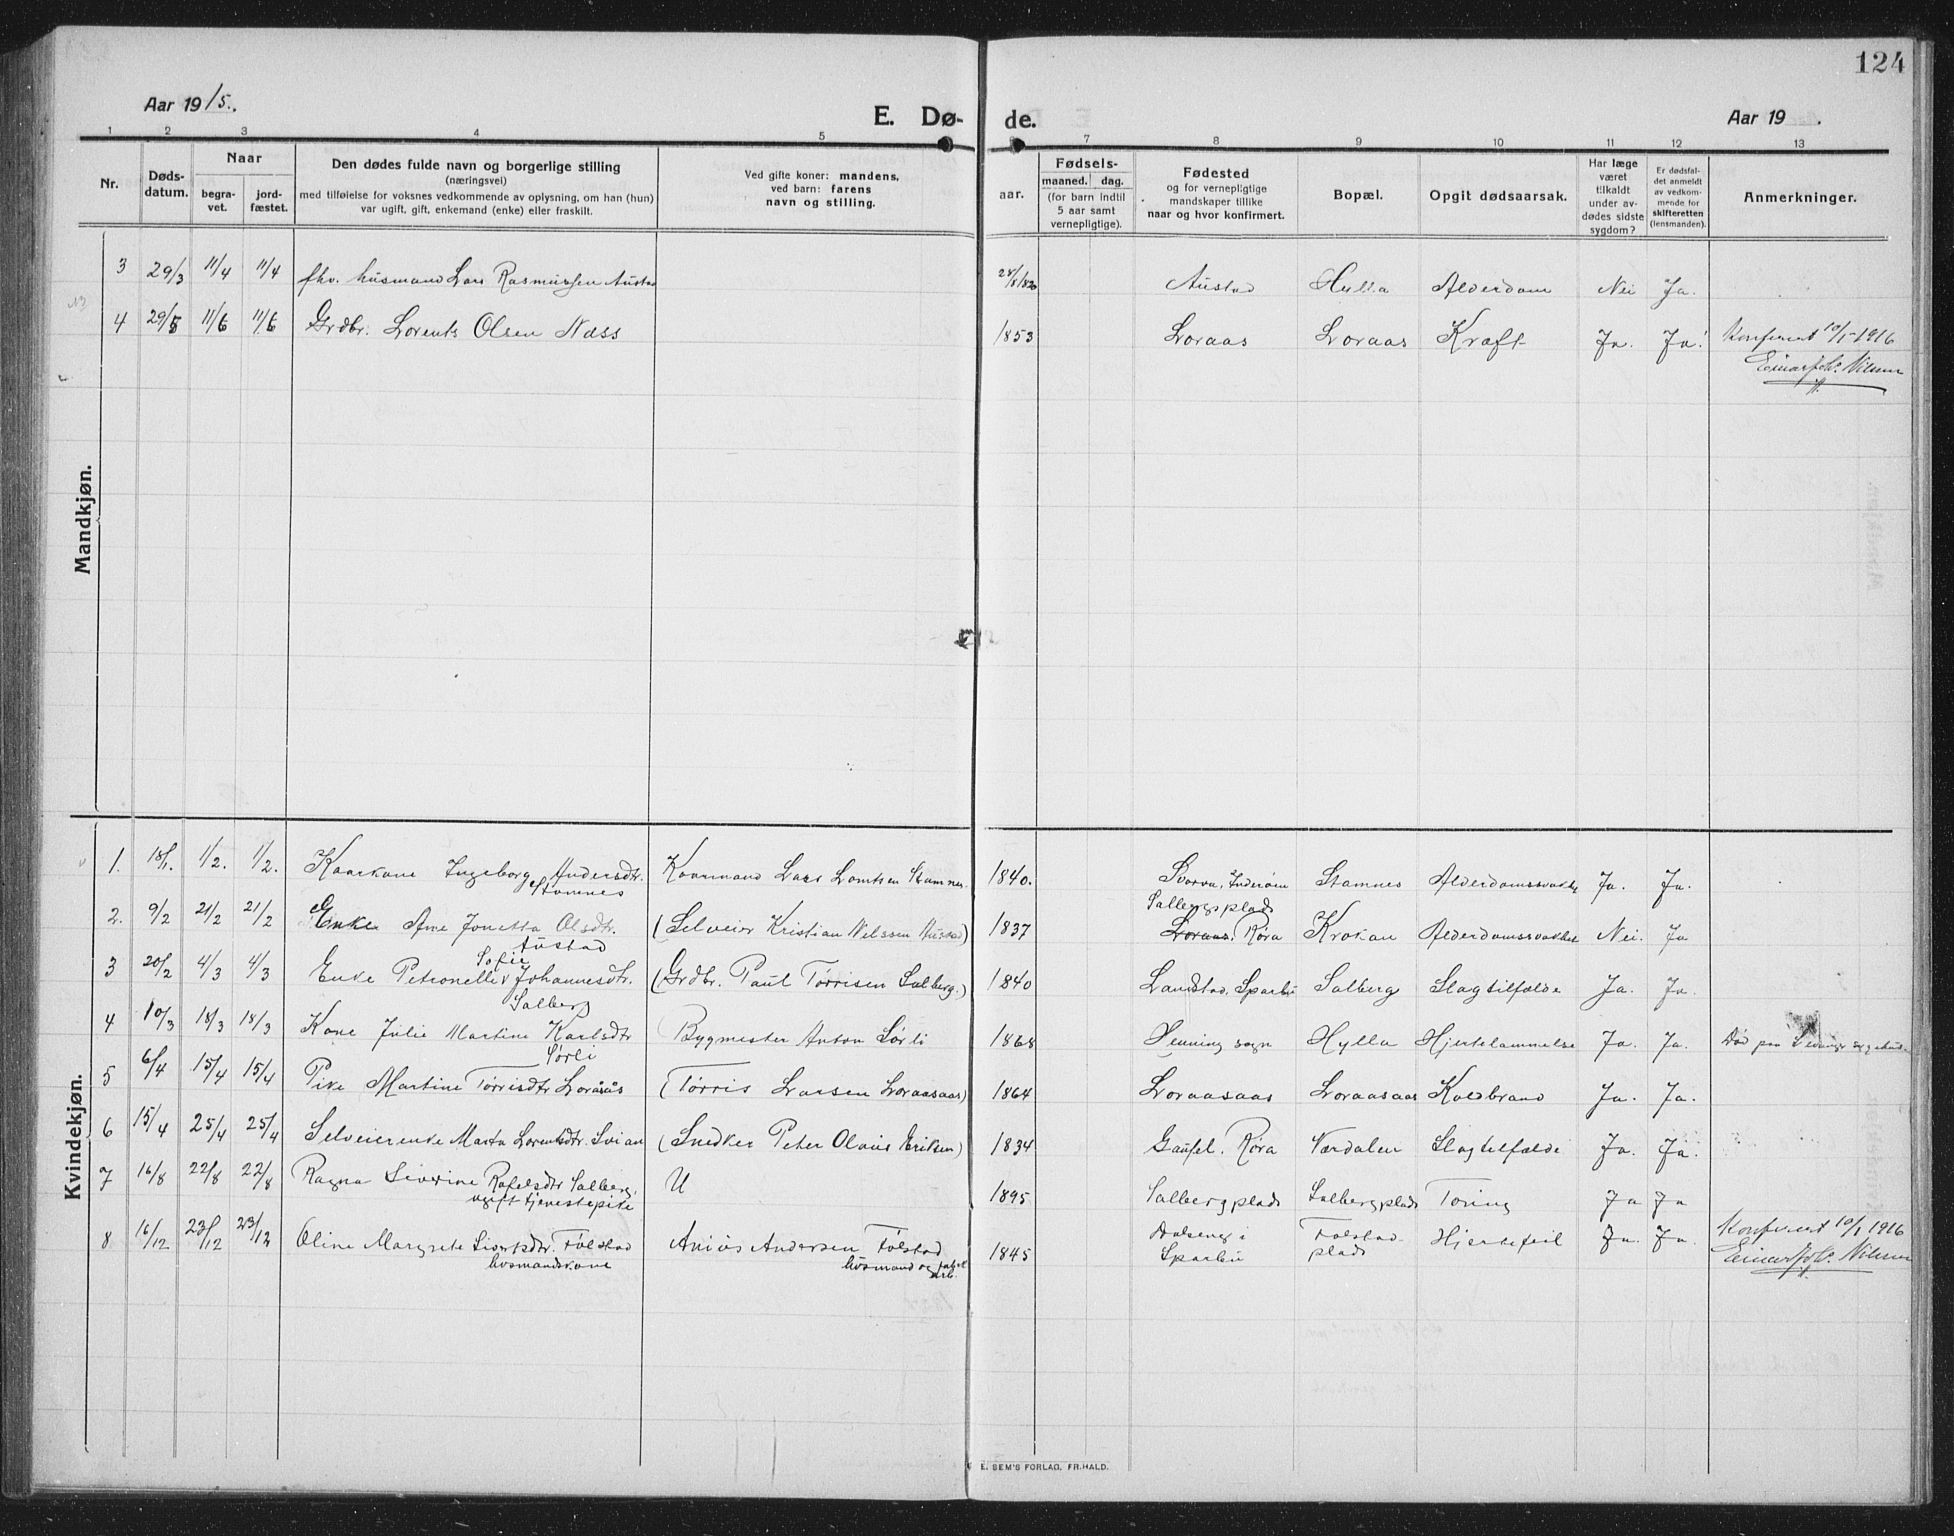 124
Aar 1915.
E. Dø-
de.
Aar 19 .
1 2 3 4 5 6 7 8 9 10 11 12 13
Nr.
Døds-
datum.
Naar
begra-
vet.
jord-
fæstet.
Den dødes fulde navn og borgerlige stilling
(næringsvei)
med tilføielse for voksnes vedkommende av oplysning, om han (hun)
var ugift, gift, enkemand (enke) eller fraskilt.
Ved gifte koner: mandens,
ved barn: farens
navn og stilling.
aar.
Fødsels-
maaned. dag.
(for barn indtil
5 aar samt
vernepligtige).
Fødested
og for vernepligtige
mandskaper tillike
naar og hvor konfirmert.
Bopæl.
Opgit dødsaarsak.
Har læge
været
tilkaldt
under av-
dødes sidste
sygdom?
Er dødsfal-
det anmeldt
av vedkom-
mende for
skifteretten
(lensmanden).
Anmerkninger.
Mandkjøn.
3 29/3 11/4 11/4 fhv. husmand Lars Rasmussen Austad Austad Hylla Alderdom Nei Ja.
4 29/5 11/6 11/6 Grdbr. Lorents Olsen Næss 1853 Loraas Loraas Kræft Ja. Ja. Konferert 10/1-1916
Nilssen
Kvindekjøn.
1. 18/1. 1/2. 1/2. Kaarkone Ingeborg Andersdtr. Kaarmand Lars Lomtsen Stamnes 1840. Inderøen Stamnes Alderdomssvakhet Ja. Ja.
Stamnes
2. 9/2 21/2 21/2 Enke Ane Jonetta Olsdtr. (Selveier Kristian Nilssen Austad) 1837 Salbergsplads
Loraas. Røra Krokan Alderdomssvakhet Nei. Ja
Austad
3 20/2 4/3 4/3 Enke Petronelle Sofie Johannesdtr. (Grdbr. Paul Tørrisen Salberg.) 1840 Landstad, Sparbu Salberg Slagtilfælde Ja. Ja.
Salberg
4 10/3 18/3 18/3 Kone Julie Martine Karlsdtr Bygmester Anton Sørli 1868 Henning sogn Hylla Hjertelammelse Ja. Ja. Død paa Levanger sygehus
Sørli
5 6/4 15/4 15/4 Pike Martine Tørrisdtr Loråsås (Tørris Larsen Loraasaas) 1864 Loraasaas Loraasaas Koldbrand Ja. Ja.
6 15/4 25/4 25/4 Selveierenke Marta Lorentsdtr. Svian (Snedker Peter Olaus Eriksen) 1834 Gaufel. Røra Værdalen Slagtilfælde Ja. Ja.
7 16/8 22/8 22/8 Ragna Siverine Rafelsdtr Salberg, U 1895 Salbergplads Salbergplads Tæring Ja Ja
ugift tjenestepike
8 16/12 23/12 23/12 Oline Margrete Sivertsdtr. Følstad Anius Andersen Følstad 1845 Dalseng i
Sparbu Følstad-
plads Hjertefeil Ja. Ja. Konferert 10/1 1916
husmandskone husmand og
arb.
Nilssen
E. SEM'S FORLAG, FR.HALD.